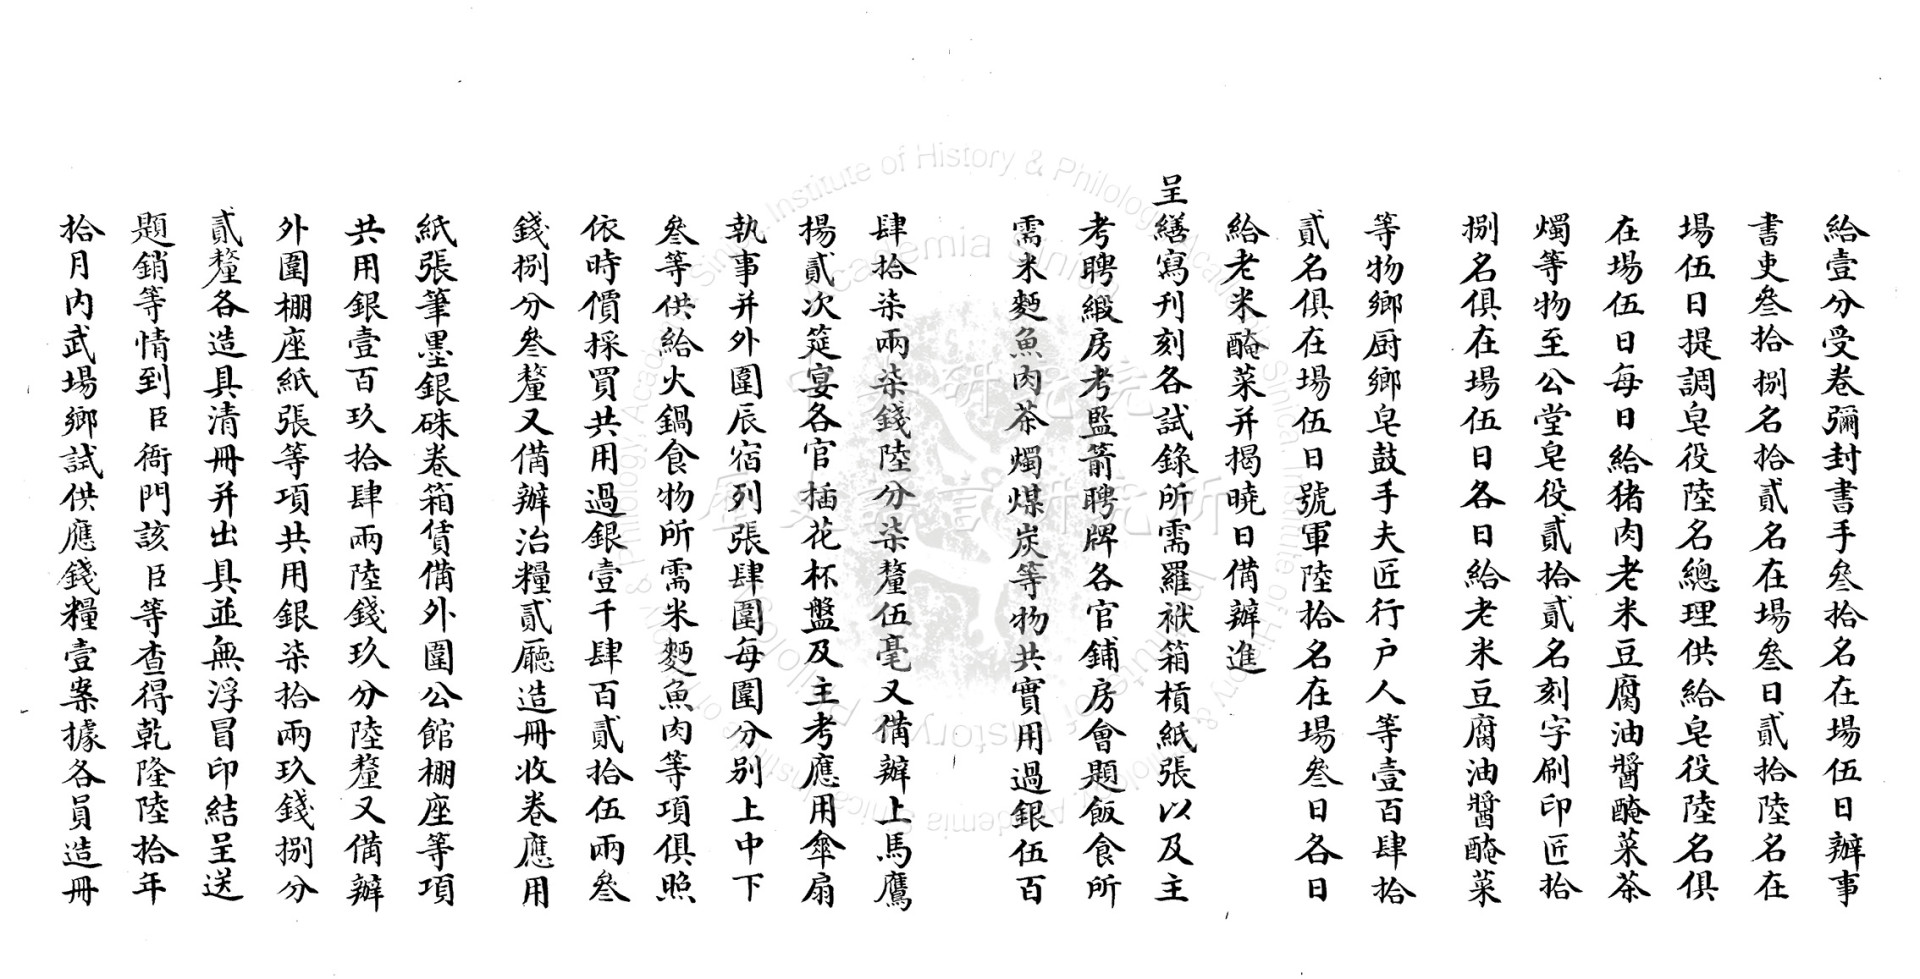 給壹分受卷彌封書手叄拾名在場伍日辦事
書吏叄拾捌名拾貳名在場叄日貳拾陸名在
場伍日提調皂役陸名總理供給皂役陸名俱
在場伍日每日給猪肉老米豆腐油醬醃菜茶
燭等物至公堂皂役貳拾貳名刻字刷印匠拾
捌名俱在場伍日各日給老米豆腐油醬醃菜
等物鄉厨鄉皂鼓手夫匠行户人等壹百肆拾
貳名俱在場伍日號軍陸拾名在場叄日各日
給老米醃菜并揭曉日備辦進
呈繕寫刊刻各試錄所需羅袱箱槓紙張以及主
考聘緞房考監箭聘牌各官鋪房會題飯食所
需米麪魚肉茶燭煤炭等物共實用過銀伍百
肆拾柒兩柒錢陸分柒釐伍毫又備辦上馬鷹
揚貳次筵宴各官插花杯盤及主考應用傘扇
執事并外圍辰宿列張肆圍每圍分別上中下
叄等供給火鍋食物所需米麪魚肉等項俱照
依時價採買共用過銀壹千肆百貳拾伍兩叄
錢捌分叄釐又備辦治糧貳廳造冊收卷應用
紙張筆墨銀硃卷箱賃備外圍公館棚座等項
共用銀壹百玖拾肆兩陸錢玖分陸釐又備辦
外圍棚座紙張等項共用銀柒拾兩玖錢捌分
貳釐各造具清冊并出具並無浮冒印結呈送
題銷等情到臣衙門該臣等查得乾隆陸拾年
拾月內武場鄉試供應錢糧壹案據各員造冊
Institute of History & Philology, Academia Sinica
中央研究院
歷史語言研究所